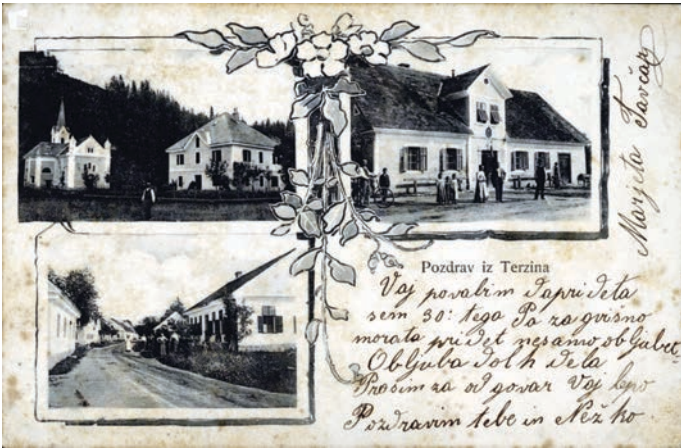 Pozdrav iz Terzina
Vaj povabim daprideta
sem 30: tega Pa za gvisno
morata pridet nesamo obljubet
Obljuba dolh dela
Prosim za od govar Vaj lepo
Pozdravim tebe in Nežko
Marjeta Tavčar